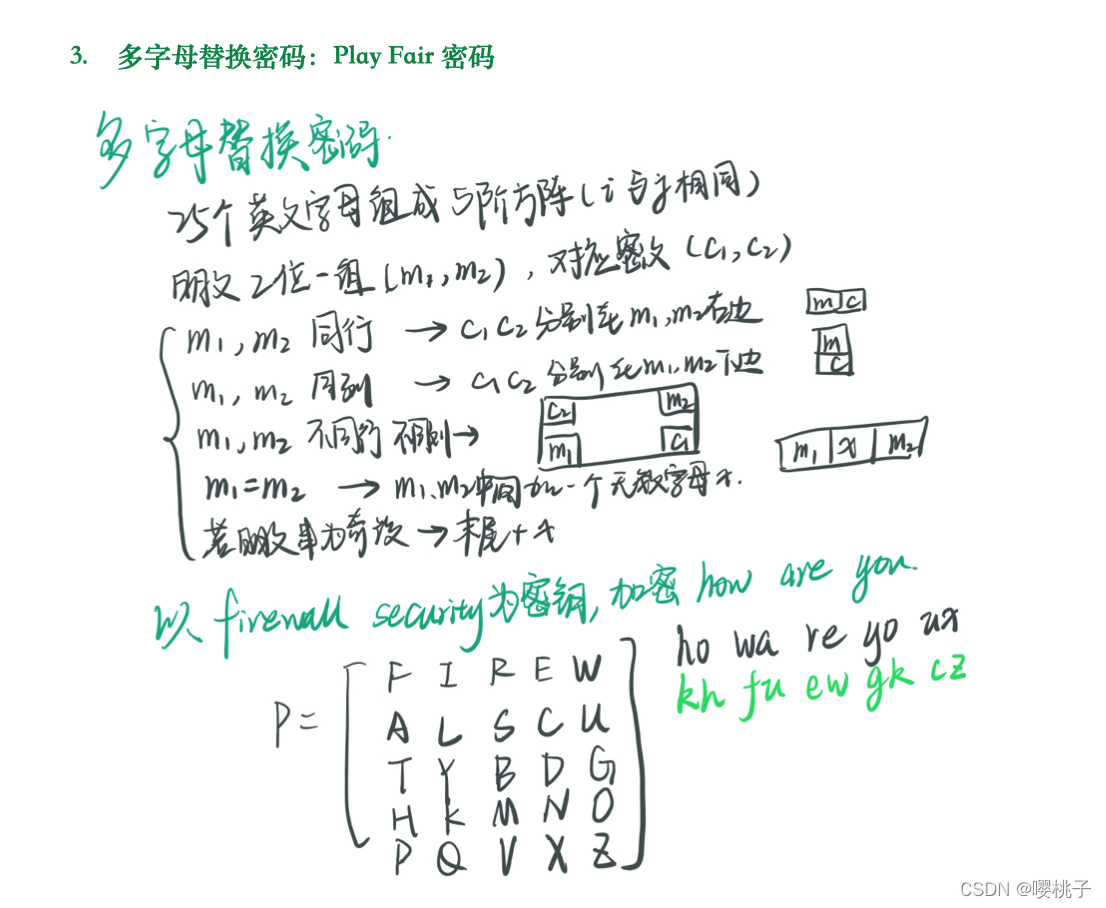 3. 多字母替换密码：Play Fair 密码
多字母替换密码.
25个英文字母组成5阶方阵(i与j相同)
明文2位一组(m₁,m₂), 对应密文(c₁,c₂)
m₁,m₂ 同行 → c₁c₂分别在m₁,m₂右边 m c
m₁,m₂ 同列 → c₁c₂分别在m₁,m₂下边 m c
m₁,m₂ 不同行不同列→ c₂ m₂ m₁ c₁
m₁=m₂ → m₁、m₂中间加一个无效字母x. m₁ x m₂
若明文串为奇数 → 末尾+x
以 firewall security为密钥,加密 how are you.
P=
F I R E W
A L S C U
T Y B D G
H K M N O
P Q V X Z
ho wa re yo ux
kh fu ew gk cz
CSDN @嘤桃子